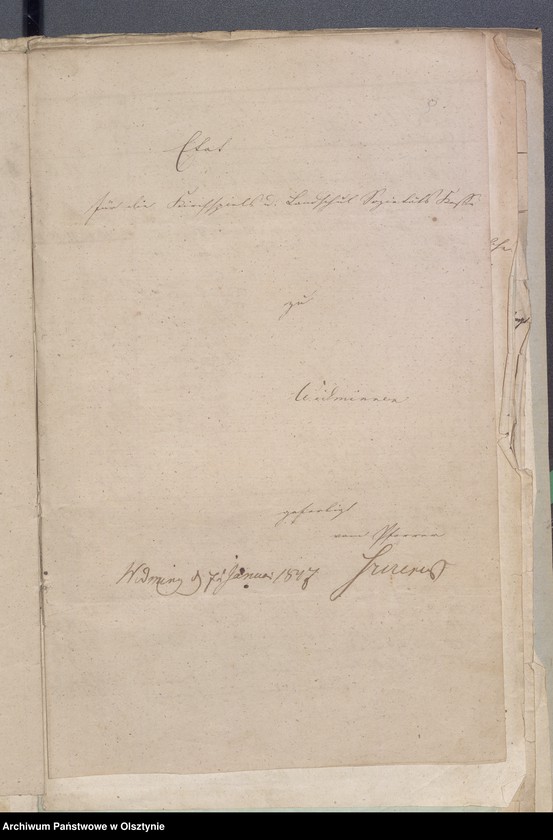 Etat
für die Kirchspiels u. Landschul Sozietäts Kasse
zu
Widminnen
gefertigt
vom Pfarrer
Widminnen d 7t Januar 1847
Archiwum Państwowe w Olsztynie